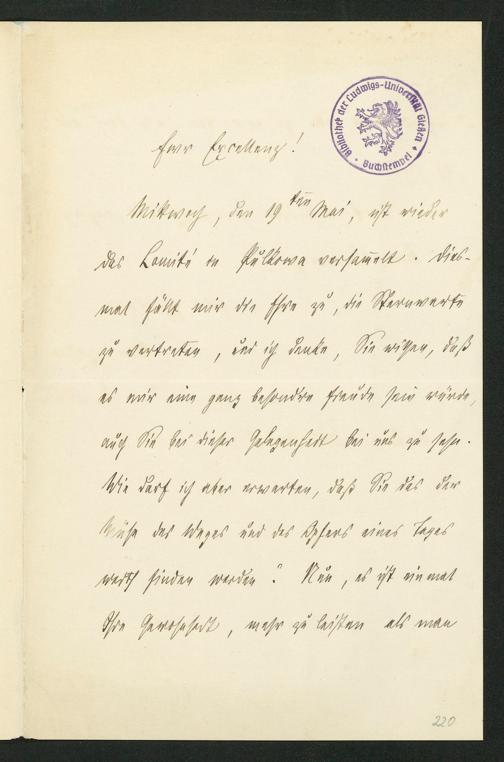 Bibliothek der Ludwigs-Universität Gießen
Buchstempel
Eure Excellenz!
Mittwoch, den 19ten Mai, ist wieder
das Comité in Pulkowa versammelt. Dies-
mal fällt mir die Ehre zu, die Sternwarte
zu vertreten, und ich denke, Sie wissen, daß
es mir eine ganz besondre Freude sein würde,
auch Sie bei dieser Gelegenheit bei uns zu sehn.
Wie darf ich aber erwarten, daß Sie das der
Mühe des Weges und des Opfers eines Tages
werth finden werden? Nun, es ist einmal
Ihre Gewohnheit, mehr zu leisten als man
220